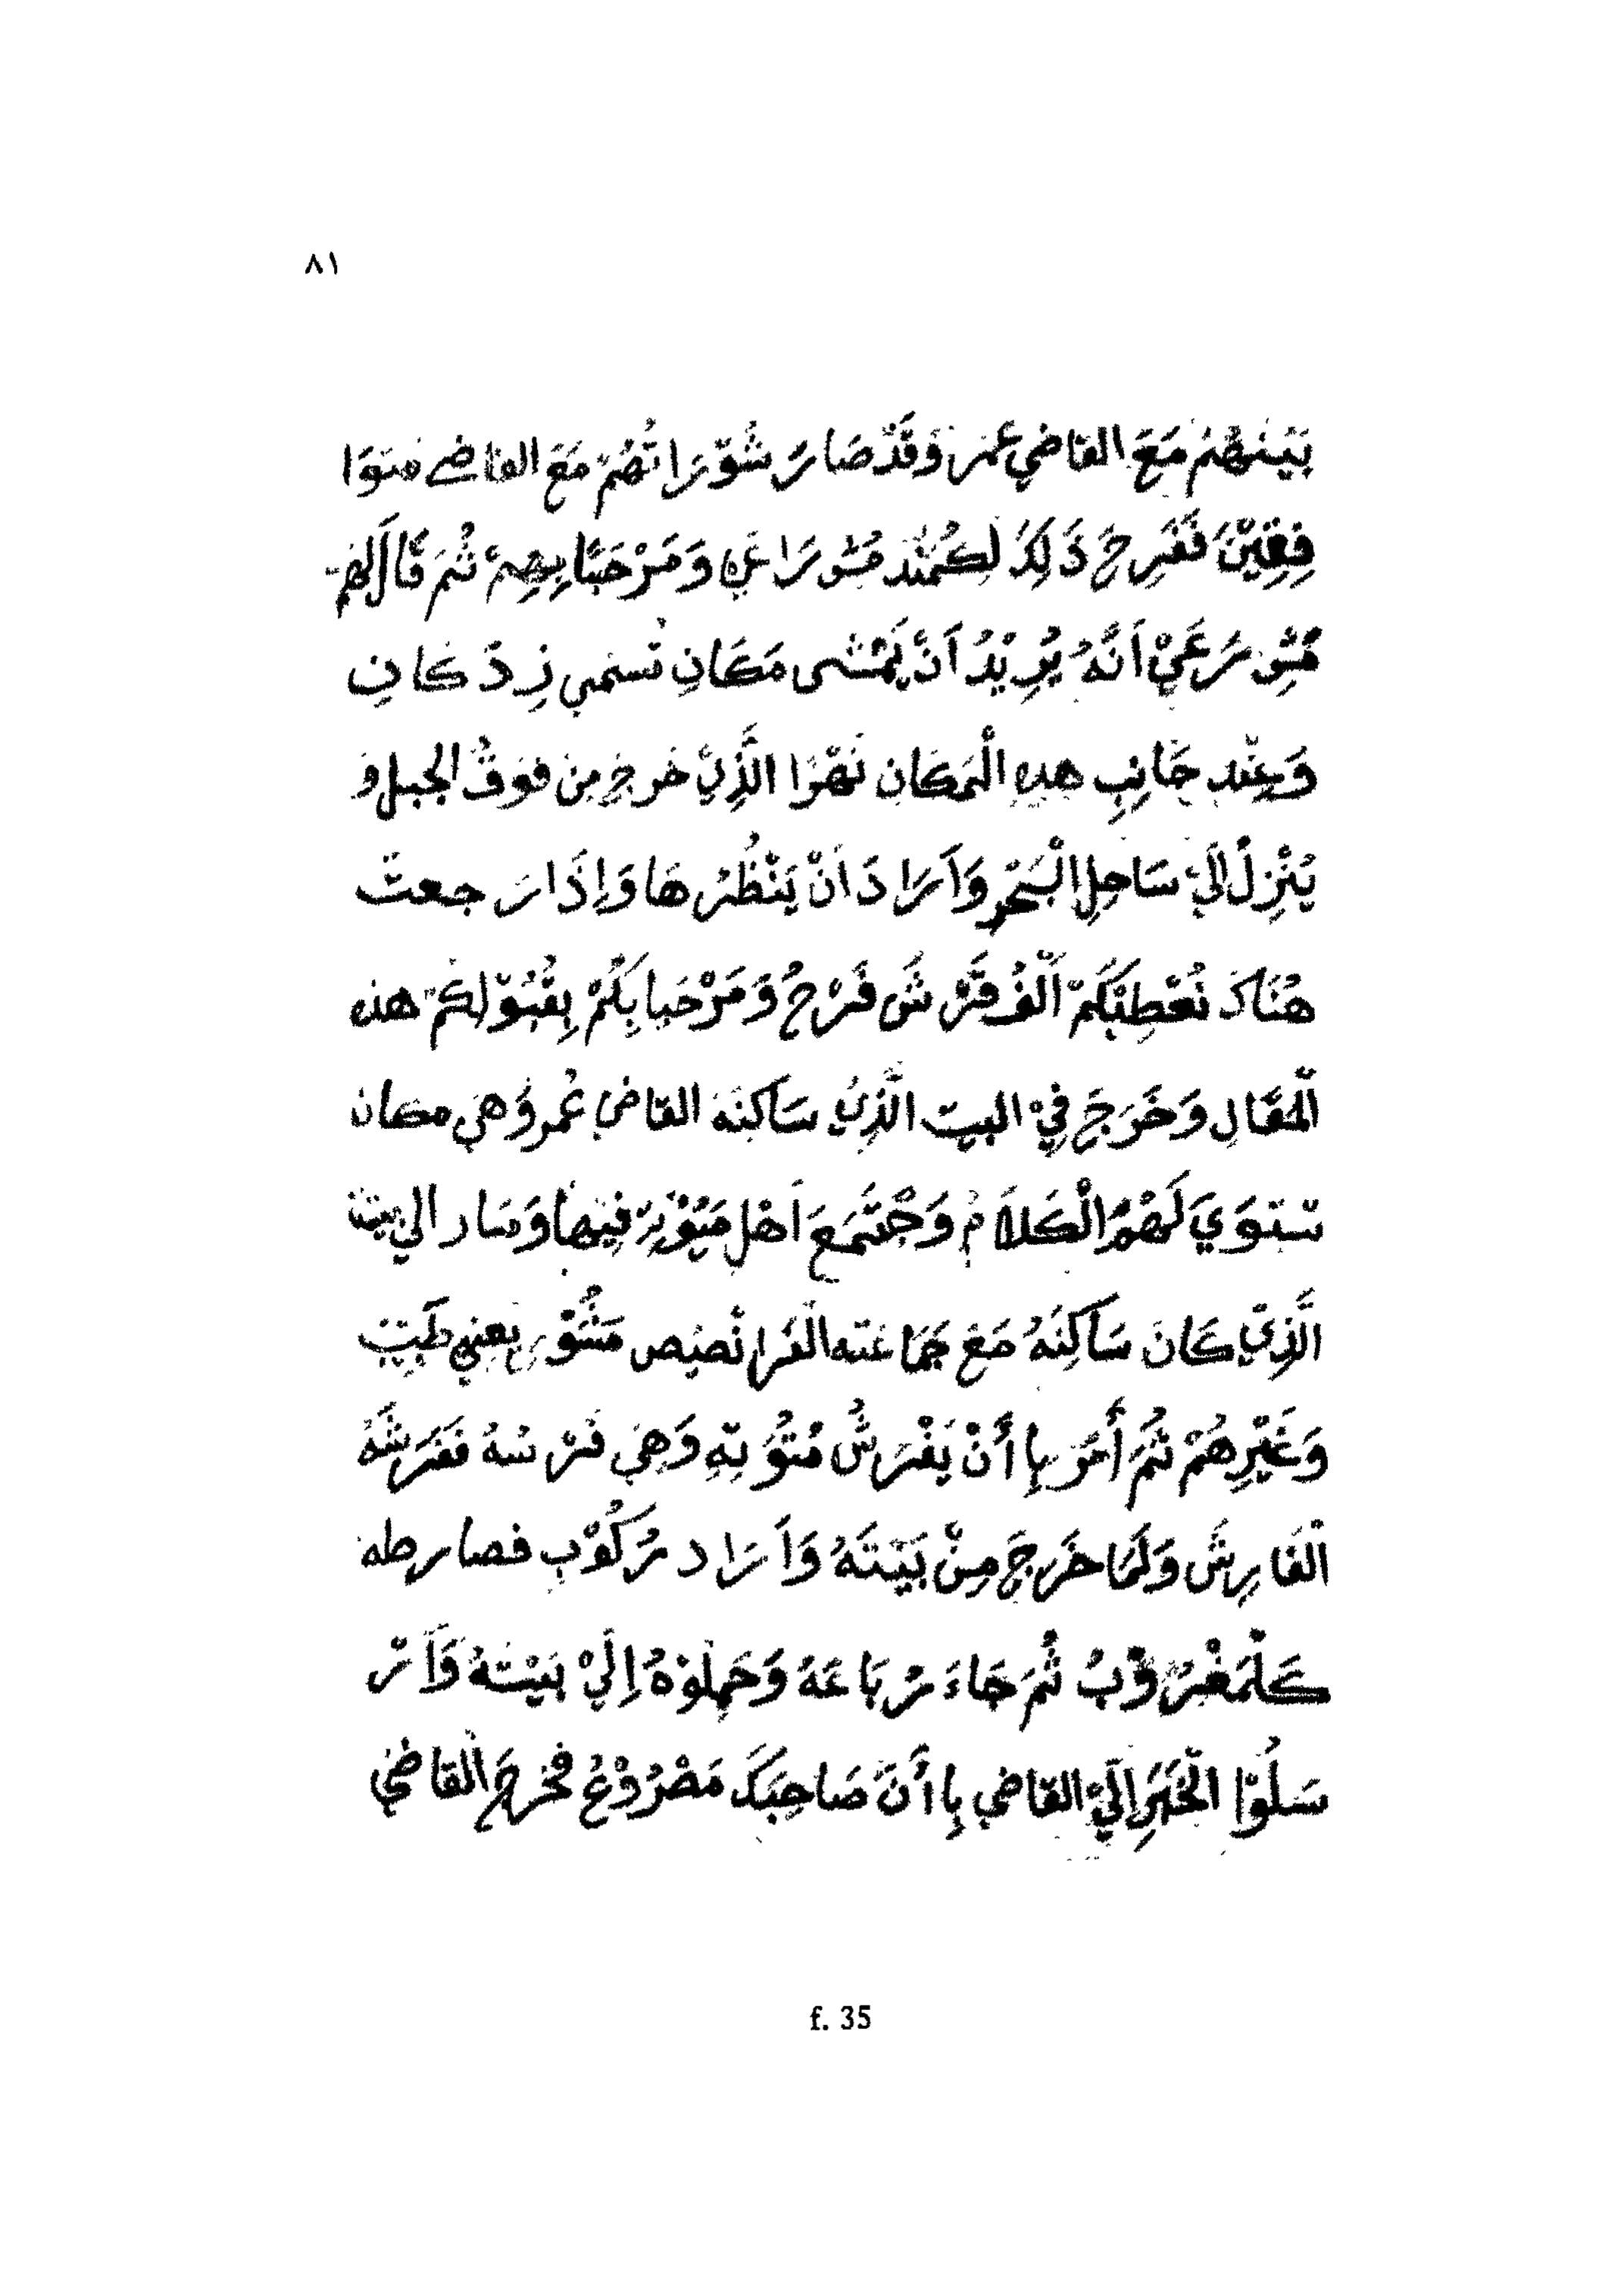 ٨١
بَيْنَهُمْ مَعَ القاضي عمر وَقَدْ صَارَ شُوْرَاتُهُمْ مَعَ القاضي متوَا
فِقِيْنَ فَفَرِحَ ذَلِكَ لكمند مشورَاعي وَمَرْحَبًا بِهِمْ ثم قَالَ لهم
مشورَعَيْ اَنَّهُ يُرِيْدُ اَنْ يَمْشى مَكَانِ تُسمي ذِدَكَانِ
وَعِنْد جَانِبِ هذه الْمَكَان نَهْرًا الَّذِيْ خرج مِن فوقُ الجبل و
يُنْزِلُ اليَ سَاحِلِ الْبَحْرِ وَاَرَادَ اَنْ يَنْظُرُهَا وَاِذَا رَجعتْ
هُنَاكَ نُعْطِيْكُمْ اَلْفُ قَرْشَ فَرْحُ وَمَرْحَبا بِكُمْ بِقُبُوْلِكُمْ هذه
الْمَقَالِ وَخَرَجَ فِيْ البيت الَّذِيْ سَاكِنَهُ القاضي عُمر وَهِيَ مكان
ستوَيَ لَهُمُ الْكَلَامُ وَجْتَمَعَ اَهْل مَيُوْتِهْ فِيْهَا وَسَار الي بيته
الَّذِيْ كَانَ سَاكِنَهُ مَعَ جَمَاعَته الفَرَانْصِيْص مَشُوْرَ يعني طَبِيْب
وَغَيْرِهُمْ ثُمَّ أَمَرَ بِا أَنْ يَفْرَشُ مُتُوْبِهِ وَهِيَ فَرْسُهُ فَفَرَشَهُ
الْفَارِشَ وَلَمَا خَرَجَ مِنْ بَيْتَهُ وَاَرَاد رُكُوْبِ فصار طه
كَلْمَغْرُوْبُ ثُمَ جَاءَ رْبَاعَهُ وَحَمِلُوْهُ اِلَيْ بَيْتَهُ وَاَرْ
سَلُوْا الْخَبَرِ اِلَيْ القاضي بِا أَنَّ صَاحِبَكَ مَصْرُوْعُ فخرجَ القاضي
f. 35